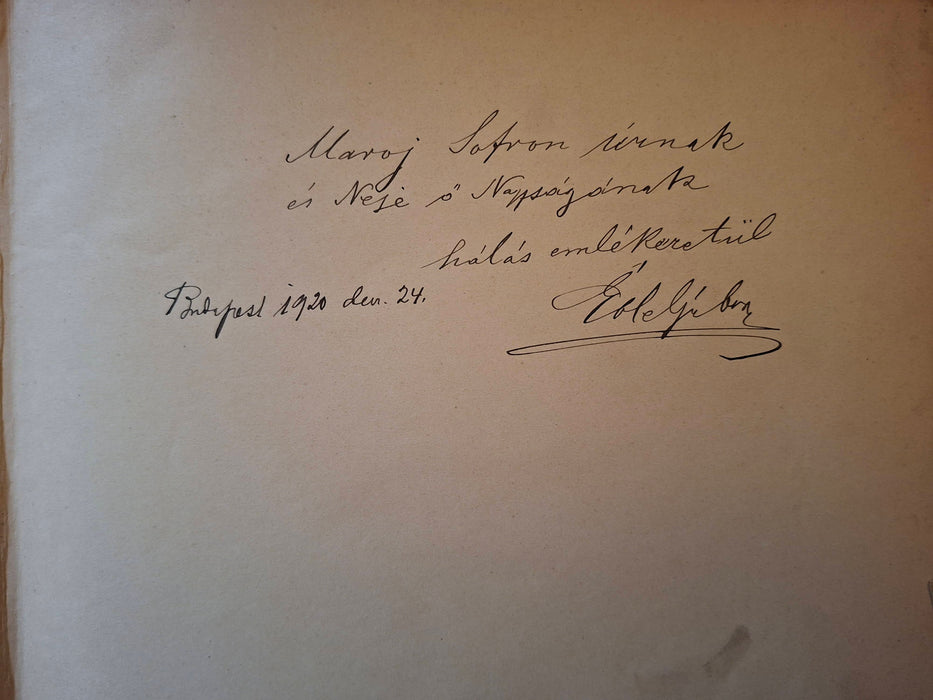 Maroj Sofron úrnak
és Neje ő Nagyságának
hálás emlékeretül
Budapest 1920 dec. 24.
Éble Gábor